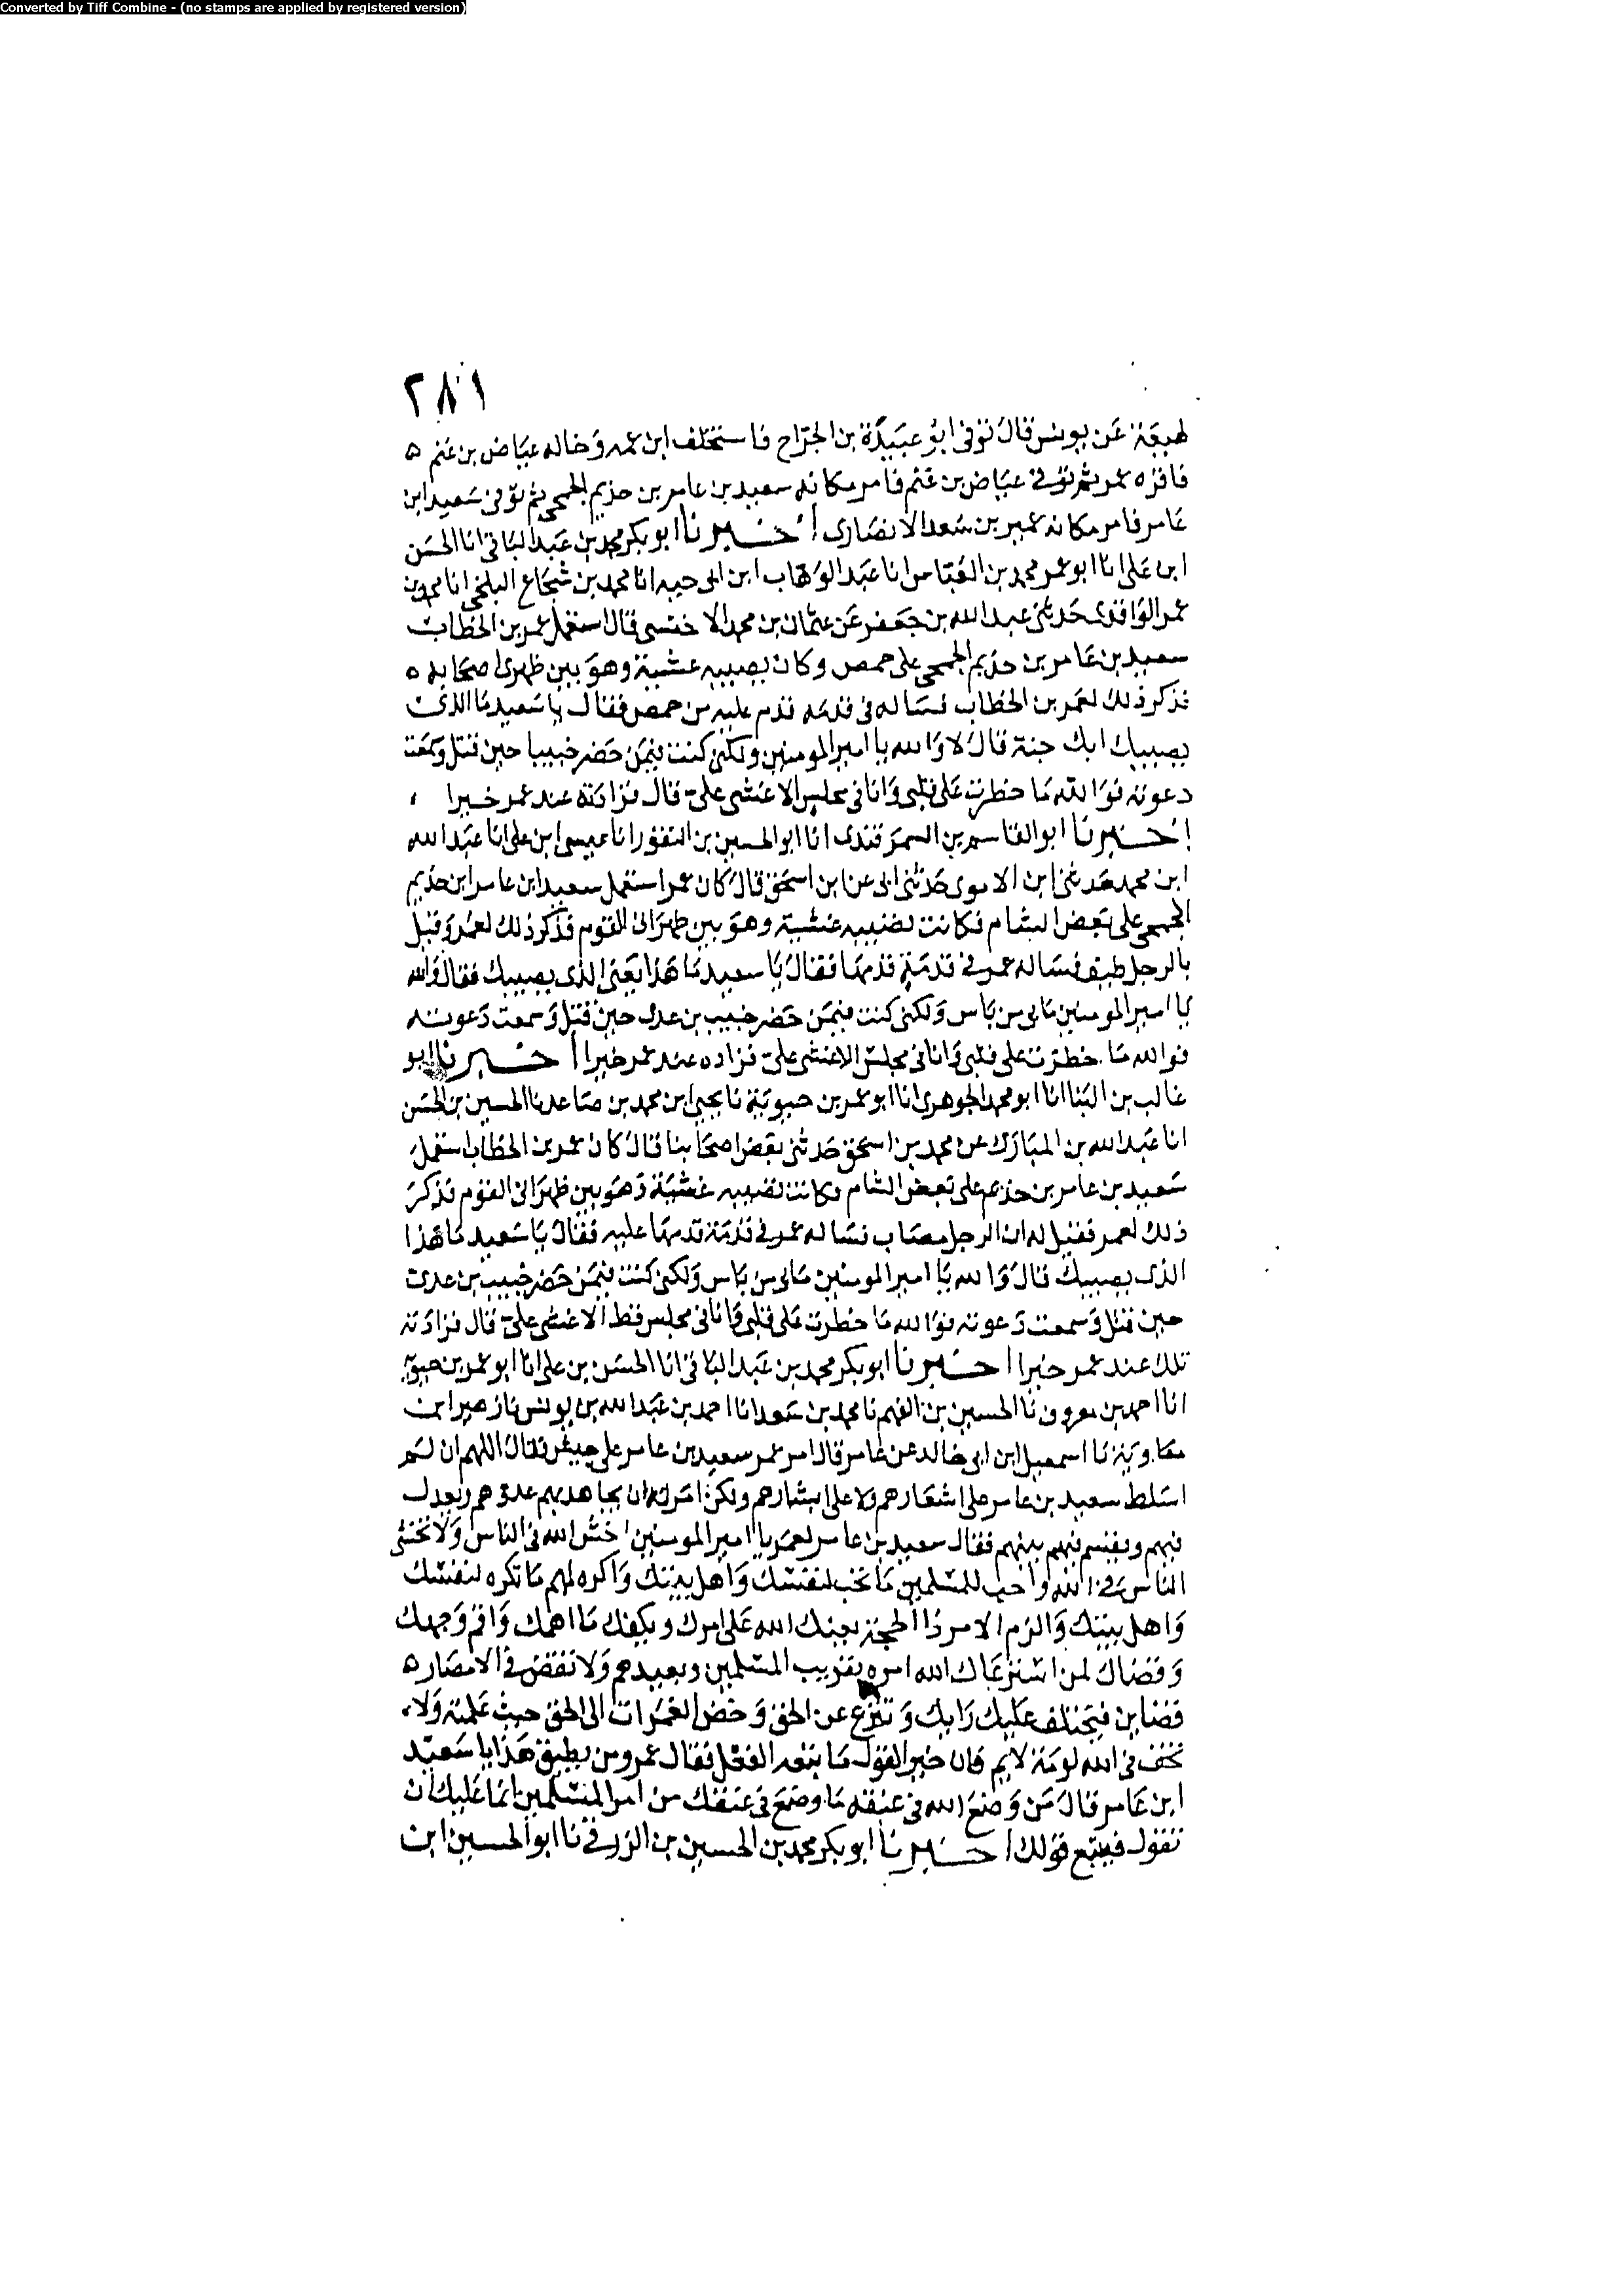 Converted by Tiff Combine - (no stamps are applied by registered version)
٢٨١
لهيعة عن يونس قال توفى ابو عبيدة بن الجراح فاستخلف ابن عمه وخاله عياض بن غنم ه
فاقره عمر ثم توفي عياض بن غنم فامر مكانه سعيد بن عامر بن حذيم الجمحي ثم توفي سعيد ابن
عامر فامر مكانه عمير بن سعد الانصارى اخبرنا ابو بكر محمد بن عبد الباقي انا الحسن
ابن على انا ابو عمر محمد بن العباس انا عبد الوهاب ابن ابى حيه انا محمد بن شجاع البلخى انا محمد بن
عمر الواقدى حدثنى عبد الله بن جعفر عن عثمان بن محمد الاخنسى قال استعمل عمر بن الخطاب
سعيد بن عامر بن حذيم الجمحى على حمص وكان يصيبه غشية وهو بين ظهرى اصحابه ه
فذكر ذلك لعمر بن الخطاب فساله فى قدمه قدم عليه من حمص فقال يا سعيد ما الذى
يصيبك ابك جنة قال لا والله يا امير المومنين ولكنى كنت فيمن حضر خبيبا حين قتل وسمعت
دعوته فوالله ما خطرت على قلبى وانا فى مجلس الا غشى علي قال فزادته عند عمر خيرا
اخبرنا ابو القاسم بن السمرقندى انا ابو الحسين بن النقور انا عيسى ابن على انا عبد الله
ابن محمد حدثنى ابن الاموى حدثنى ابى عن ابن اسحق قال كان عمر استعمل سعيد ابن عامر ابن حذيم
الجمحى على بعض الشام فكانت تصيبه غشية وهو بين ظهرانى القوم فذكر ذلك لعمر وقيل
بالرجل طيف فساله عمر في قدمة قدمها فقال يا سعيد ما هذا يعنى الذى يصيبك فقال والله
يا امير المومنين مابى من باس ولكنى كنت فيمن حضر خبيب بن عدى حين قتل وسمعت دعوته
فوالله ما خطرت على قلبى وانا فى مجلس الا غشى علي فزاده عند عمر خيرا اخبرنا ابو
غالب بن البنا انا ابو محمد الجوهرى انا ابو عمر بن حيوية نا يحيى ابن محمد بن صاعد نا الحسين بن الحسن
انا عبد الله بن المبارك عن محمد بن اسحق حدثنى بعض اصحابنا قال كان عمر بن الخطاب استعمل
سعيد بن عامر بن حذيم على بعض الشام فكانت تصيبه غشية وهو بين ظهرانى القوم فذكر
ذلك لعمر فقيل له ان الرجل مصاب فساله عمر في قدمة قدمها عليه فقال يا سعيد ما هذا
الذى يصيبك قال والله يا امير المومنين مابى من باس ولكنى كنت فيمن حضر خبيب بن عدى
حين قتل وسمعت دعوته فوالله ما خطرت على قلبى وانا فى مجلس قط الا غشى علي قال فزادته
تلك عند عمر خيرا اخبرنا ابو بكر محمد بن عبد الباقى انا الحسن بن على انا ابو عمر بن حيوية
انا احمد بن معروف نا الحسين بن الفهم نا محمد بن سعد انا احمد بن عبد الله بن يونس نا زهير ابن
معاوية نا اسمعيل ابن ابى خالد عن عامر قال امر عمر سعيد بن عامر على جيش فقال اللهم ان لم
اسلط سعيد بن عامر على اشعارهم ولا على ابشارهم ولكن امرته ان يجاهد بهم عدوهم ويعدل
فيهم ويقسم فيهم بينهم فقال سعيد بن عامر لعمر يا امير المومنين اخش الله فى الناس ولا تخشى
الناس فى الله واحب للمسلمين ما تحب لنفسك واهل بيتك واكره لهم ما تكره لنفسك
واهل بيتك والزم الامر ذا الحجة يعينك الله على امرك ويكفك ما اهمك واقم وجهك
وقضاك لمن استرعاك الله امره بقريب المسلمين وبعيدهم ولا تقض في الامصار ه
قضاين فيختلف عليك رايك وتنزع عن الحق وخض الغمرات الى الحق حيث علمته ولا
تخف فى الله لومة لايم فان خير القول ما يتبعه الفعل فقال عمر ومن يطيق هذا يا سعيد
ابن عامر قال من وضع الله فى عنقه ما وضع في عنقك من امر المسلمين انما عليك ان
تقول فيتبع قولك اخبرنا ابو بكر محمد بن الحسين بن المزرفي نا ابو الحسين ابن